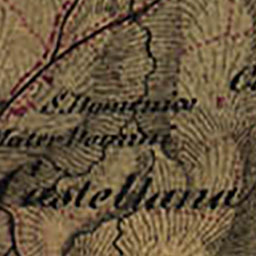 S. Domenico
Mater Domini
Castellana